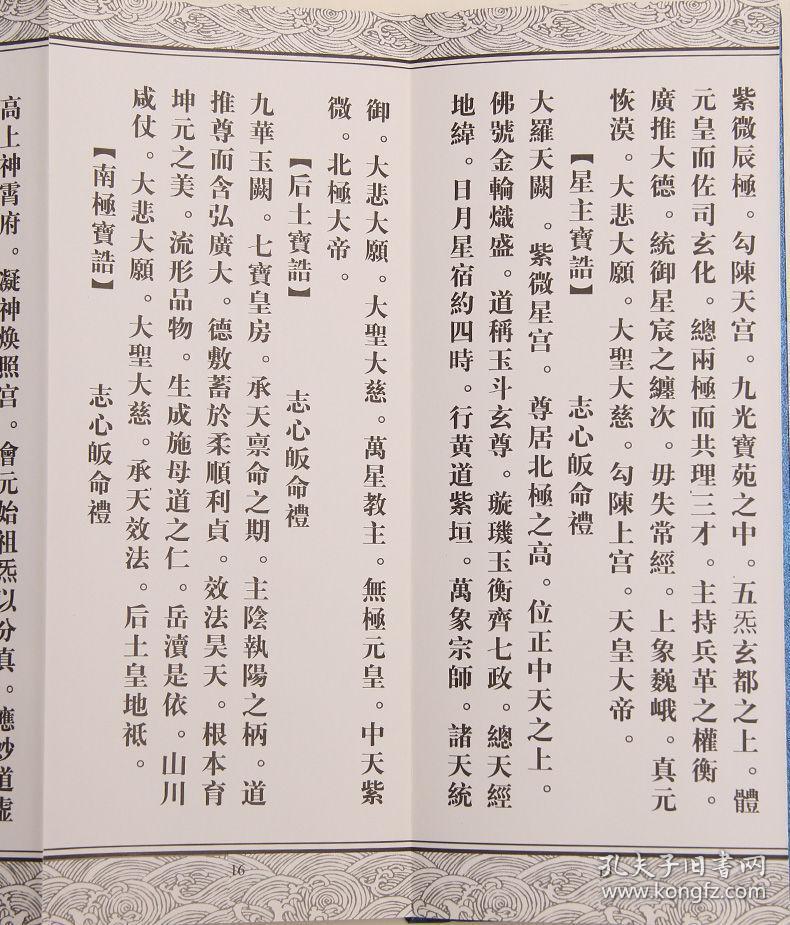 紫微辰極。勾陳天宫。九光寶苑之中。五炁玄都之上。體
元皇而佐司玄化。總兩極而共理三才。主持兵革之權衡。
廣推大德。統御星宸之纏次。毋失常經。上象巍峨。真元
恢漠。大悲大願。大聖大慈。勾陳上宫。天皇大帝。
【星主寶誥】 志心皈命禮
大羅天闕。紫微星宫。尊居北極之高。位正中天之上。
佛號金輪熾盛。道稱玉斗玄尊。璇璣玉衡齊七政。總天經
地緯。日月星宿約四時。行黄道紫垣。萬象宗師。諸天統
御。大悲大願。大聖大慈。萬星教主。無極元皇。中天紫
微。北極大帝。
【后土寶誥】 志心皈命禮
九華玉闕。七寶皇房。承天禀命之期。主陰執陽之柄。道
推尊而含弘廣大。德敷蓄於柔順利貞。效法昊天。根本育
坤元之美。流形品物。生成施母道之仁。岳瀆是依。山川
咸仗。大悲大願。大聖大慈。承天效法。后土皇地祇。
【南極寶誥】 志心皈命禮
高上神霄府。凝神焕照宫。會元始祖炁以分真。應妙道虚
16
孔夫子旧书网
www.kongfz.com